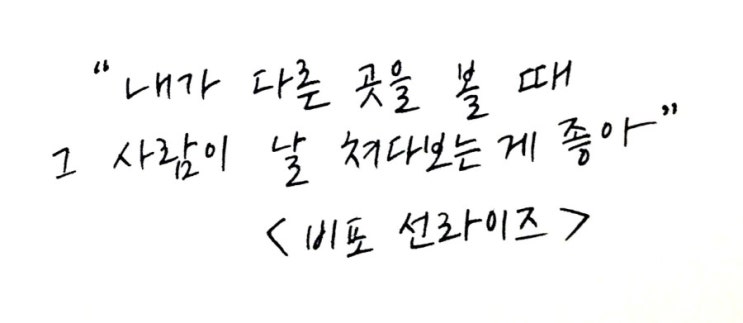 “내가 다른 곳을 볼 때
그 사람이 날 쳐다보는 게 좋아”
<비포 선라이즈>